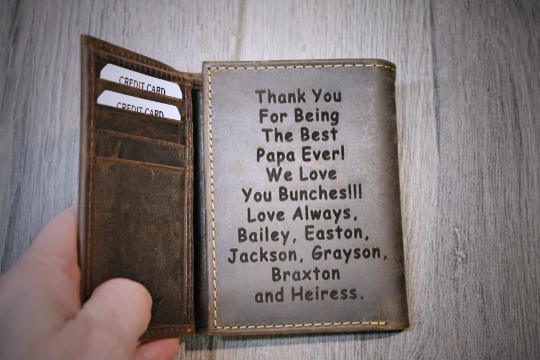 CREDIT CARD
CREDIT CARD
Thank You
For Being
The Best
Papa Ever!
We Love
You Bunches!!!
Love Always,
Bailey, Easton,
Jackson, Grayson,
Braxton
and Heiress.